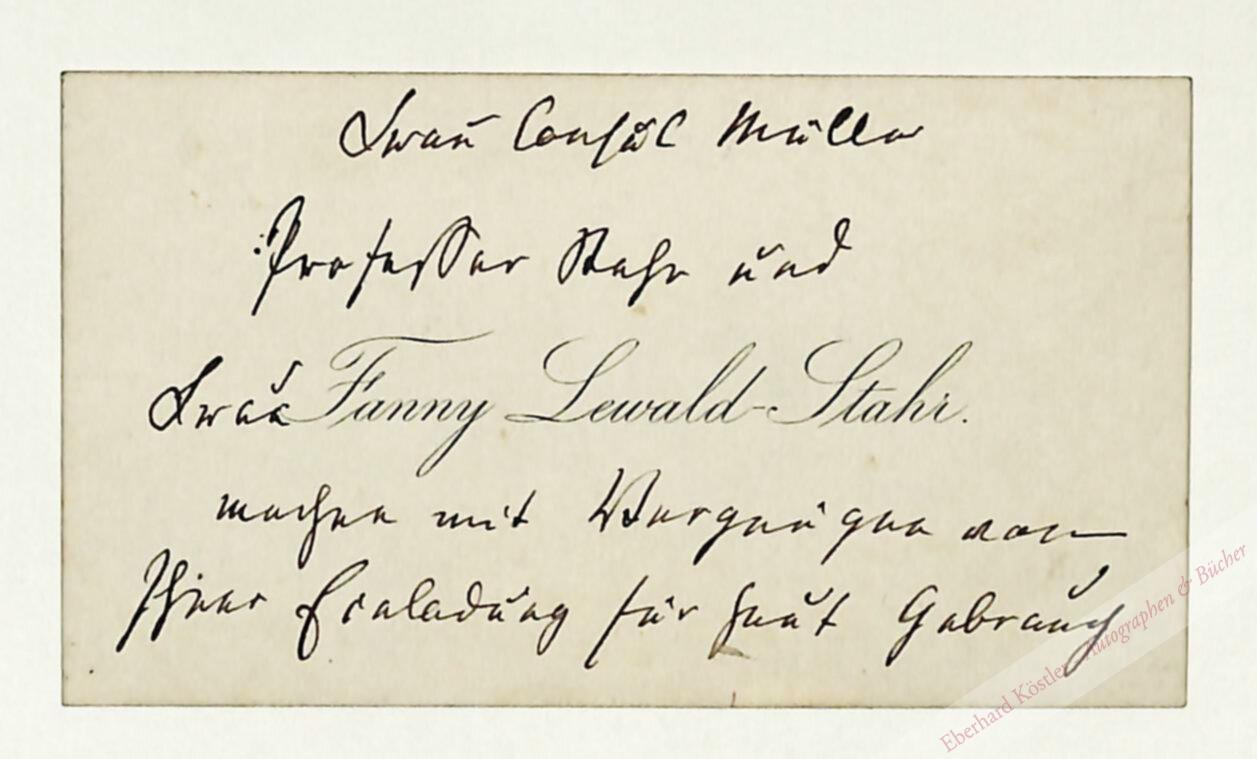 Frau Consul Müller
Professor Stahr und
Frau Fanny Lewald-Stahr.
machen mit Vergnügen von
Ihrer Einladung für heut Gebrauch
Eberhard Köstler Autographen & Bücher